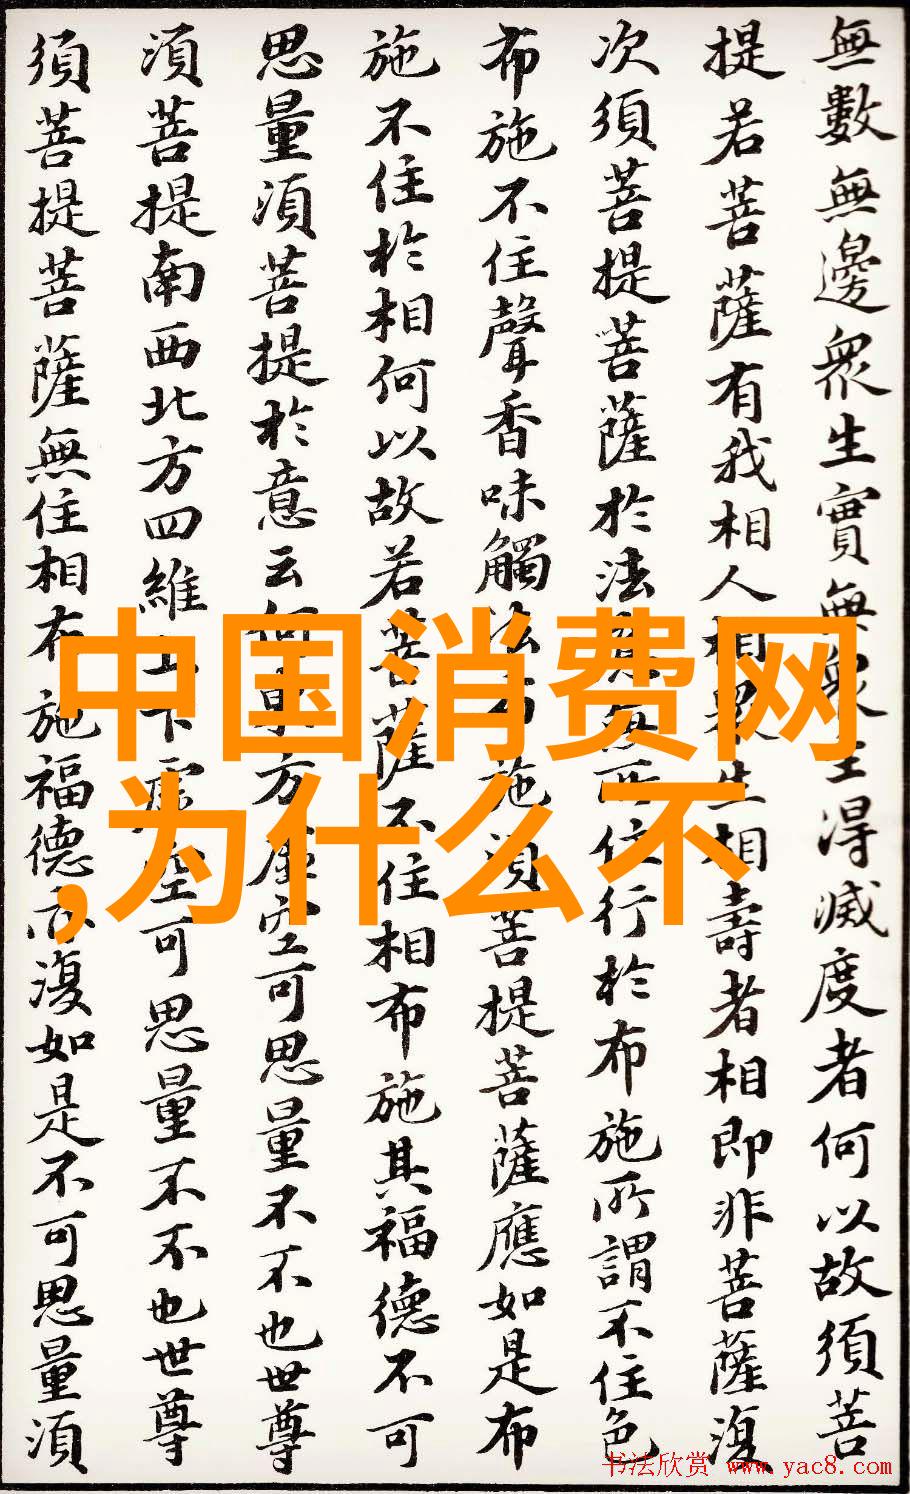 無數無邊衆生實無衆生得滅度者何以故須菩
提若菩薩有我相人相衆生相壽者相即非菩薩復
次須菩提菩薩於法應無所住行於布施所謂不住色
布施不住聲香味觸法布施須菩提菩薩應如是布
施不住於相何以故若菩薩不住相布施其福德不可
思量須菩提於意云何東方虛空可思量不不也世尊
須菩提南西北方四維上下虛空可思量不不也世尊
須菩提菩薩無住相布施福德亦復如是不可思量須
中国消费网
,为什么不
书法欣赏 www.yac8.com